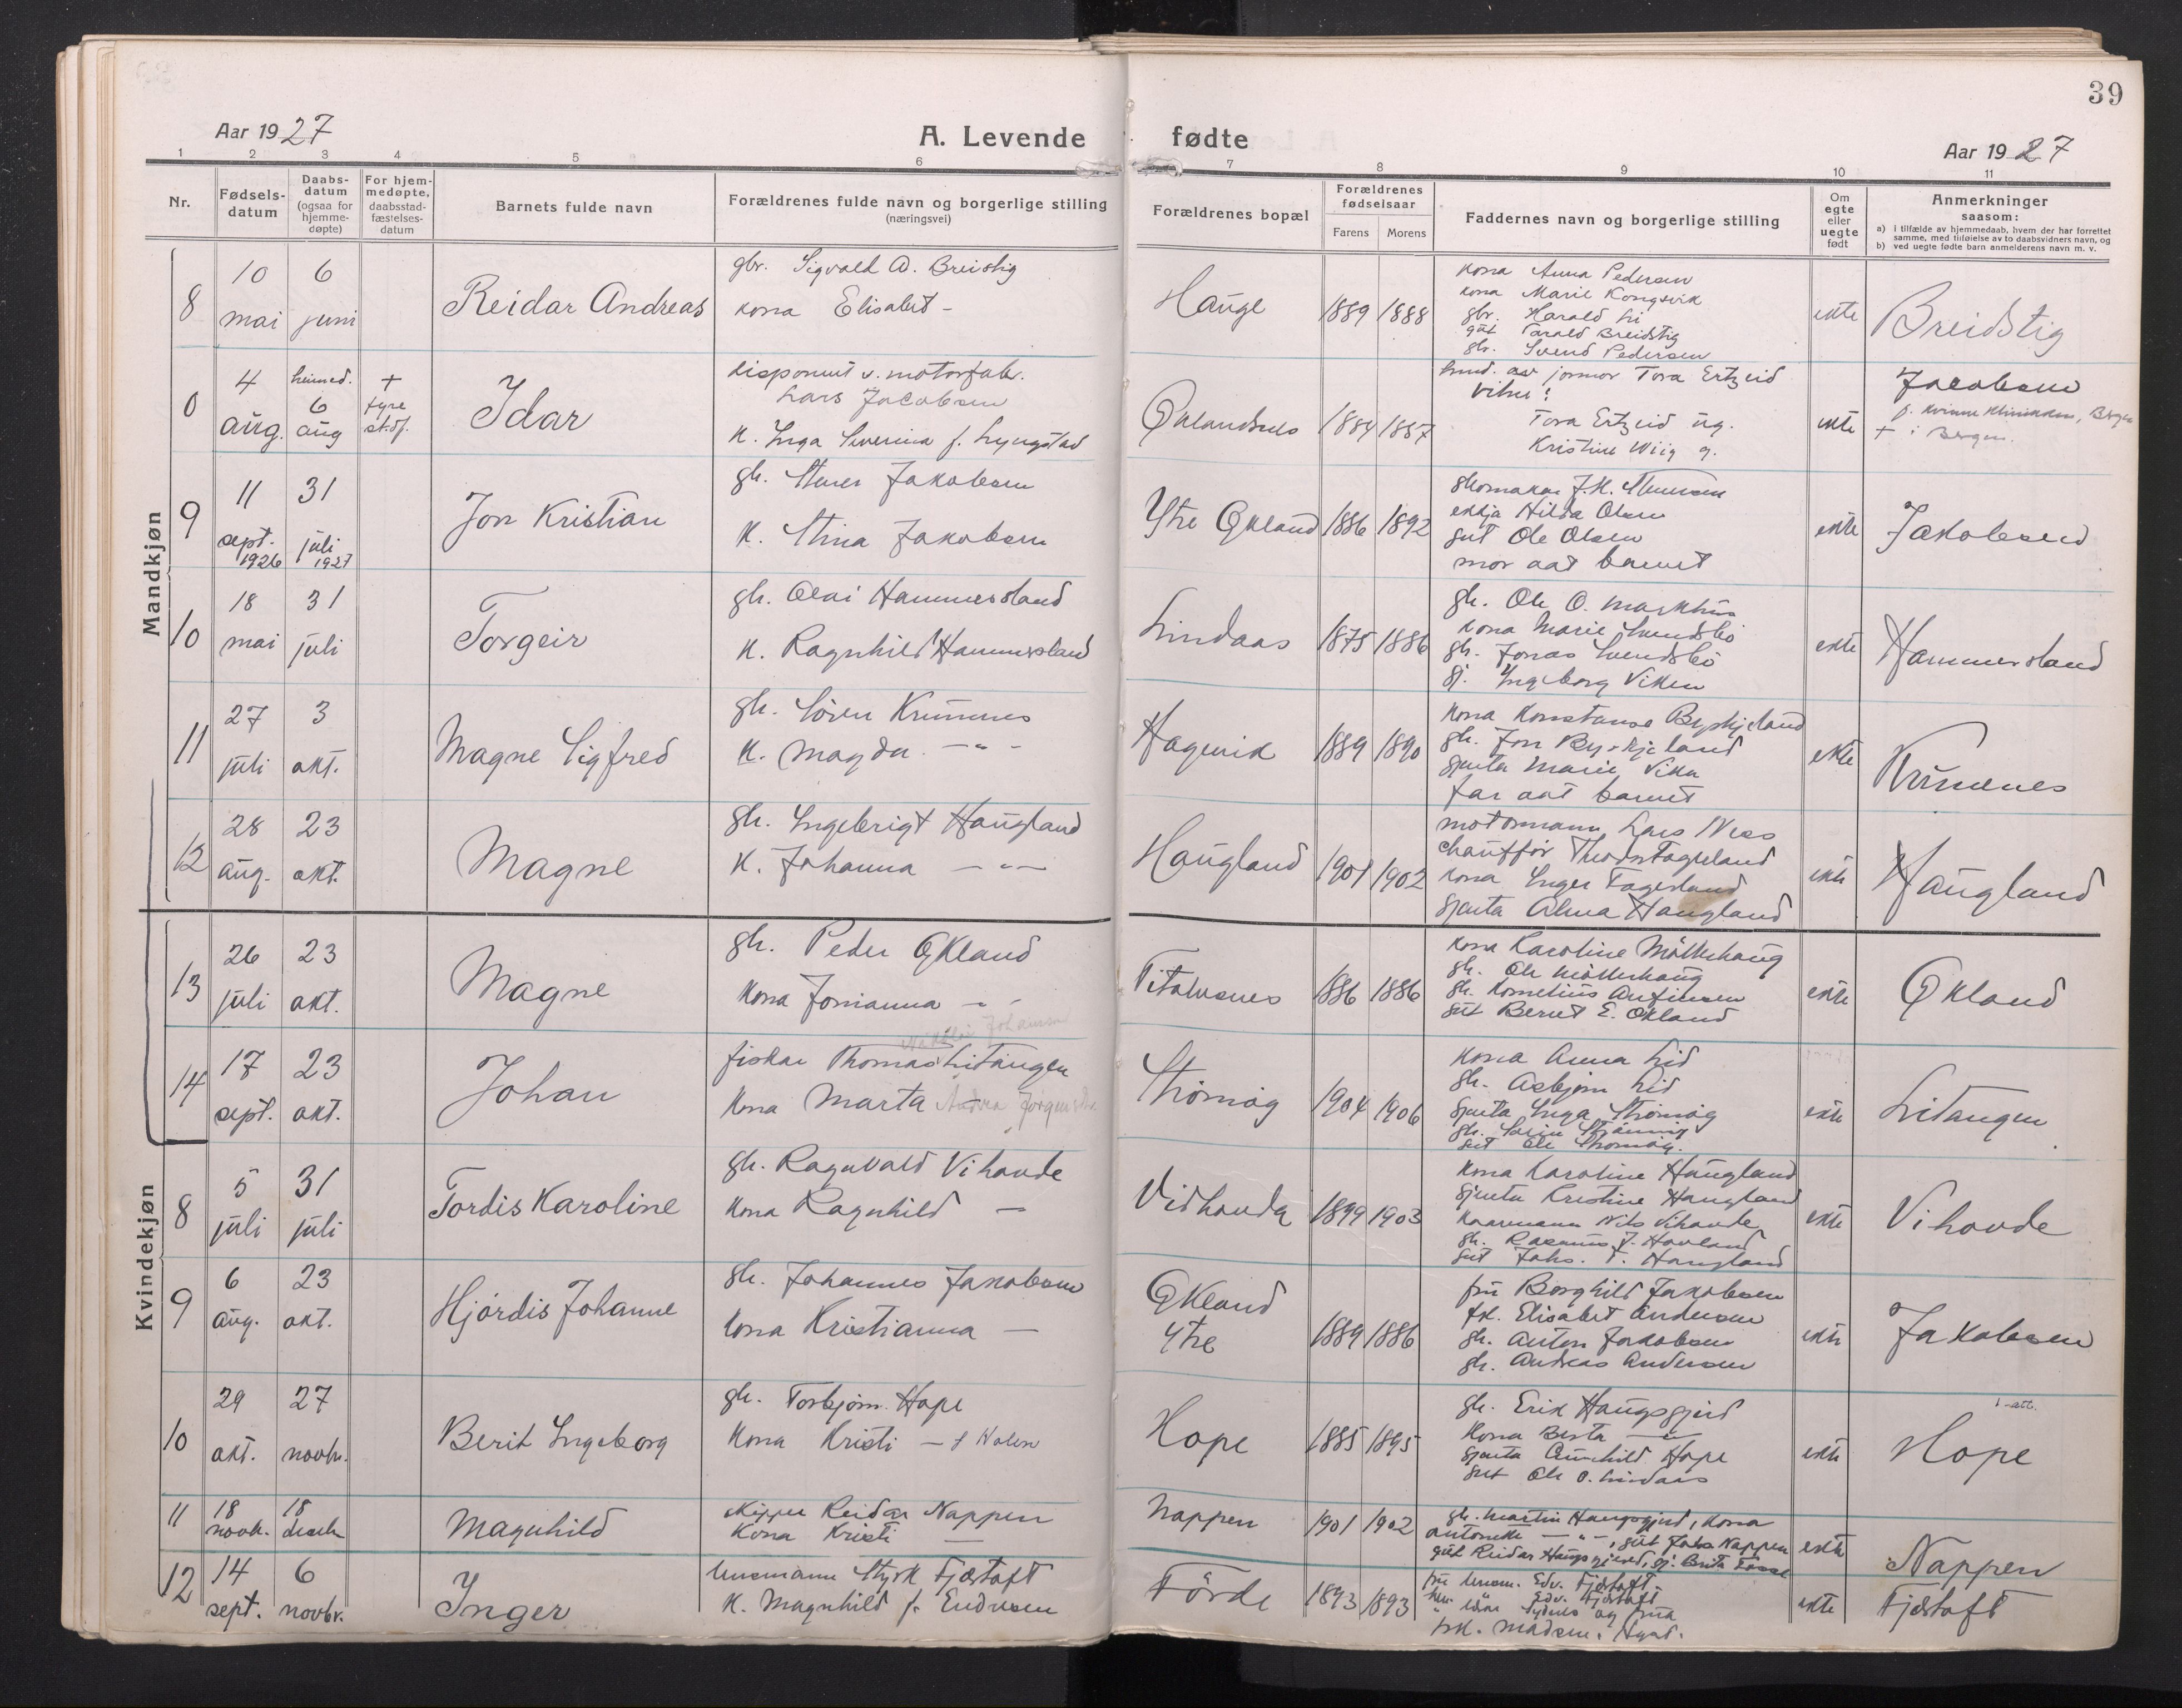 39
Aar 1927
A. Levende fødte
Aar 1927
1 2 3 4 5 6 7 8 9 10 11
Nr.
Fødsels-
datum
Daabs-
datum
(ogsaa for
hjemme-
døpte)
For hjem-
medøpte,
daabsstad-
fæstelses-
datum
Barnets fulde navn
Forældrenes fulde navn og borgerlige stilling
(næringsvei)
Forældrenes bopæl
Forældrenes
fødselsaar
Farens Morens
Faddernes navn og borgerlige stilling
Om
egte
eller
uegte
født
Anmerkninger
saasom:
a) i tilfælde av hjemmedaab, hvem der har forrettet
samme, med tilføielse av to daabsvidners navn, og
b) ved uegte fødte barn anmelderens navn m. v.
Mandkjøn
8
10 mai
6 juni
Reidar Andreas
gbr. Sigvald A. Breistig
kona Elisabet -
Hauge
1889 1888
kona Anna Pedersen
kona Marie Kongsvik
gbr. Harald Li
gut Harald Breidstig
gbr. Svend Pedersen
ekte
Breidstig
0
4 aug.
heimed. 6 aug
+
fyre
st.df.
Idar
disponent v. motorfabr.
Lars Jacobsen
k. Inga Severina f. Lyngstad
1884 1887
jormor Tora Ertzeid
Vitne:
Tora Ertzeid ug.
Kristine Wiig g.
ekte
Jacobsen
f. Kvinneklinikken, Bergen
+ i Bergen.
9
11 sept. 1926
31 juli 1927
Jon Kristian
gb. Jakobsen
k. Stina Jakobsen
Ytre Økland
1886 1892
skomakar J.K.
enkja Hilda Olsen
gut Ole Olsen
mor aat barnet
ekte
Jakobsen
10
18 mai
31 juli
Torgeir
gb. Olai Hammersland
k. Ragnhild Hammersland
Lindaas
1875 1886
gb. Ole O. Markhus
kona Marie Svendsbö
gb. Jonas Svendsbö
gj. Ingeborg Viken
ekte
Hammersland
11
27 juli
3 okt.
Magne Sigfred
gb. Sören Krunenes
k. Magda -"-
Hagevik
1889 1890
kona Konstanse Byrkjeland
gb. Jon Byrkjeland
gjenta Marie Vika
far aat barnet
ekte
Krunenes
12
28 aug.
23 okt.
Magne
gb. Ingebrigt Haugland
k. Johanna -"-
Haugland
1901 1902
motormann Lars Ness
chauffør Theodor Fagerland
kona Inger Fagerland
gjenta Alma Haugland
ekte
Haugland
13
26 juli
23 okt.
Magne
gb. Peder Økland
kona Jonianna -"-
1886 1886
kona Karoline Möllerhaug
gb. Ole Möllerhaug
gb. Kornelius Anfinsen
gut Bernt E. Økland
ekte
Økland
14
17 sept.
23 okt.
Johan
Johansen
fiskar Thomas Litangen
kona Marta Andrea Jørgensdtr.
Strömöy
1904 1906
kona Anna Lid
gb. Asbjörn Lid
gjenta Inga Strömöy
gb. Strömöy
gut Ole Strömöy.
ekte
Litangen
Kvindekjøn
8
5 juli
31 juli
Tordis Karoline
gb. Ragnvald Vihovde
kona Ragnhild -
Vidhovda
1899 1903
kona Karoline Haugland
gjenta Kristine Haugland
kaarmann Nils Vihovde
gb. Rasmus J. Hovland
gut Johs. T. Haugland
ekte
Vihovde
9
6 aug.
23 okt.
Hjördis Johanne
gb. Johannes Jakobsen
kona Kristianna -
Økland
Ytre
1889 1886
fru Borghild Jakobsen
frk. Elisabet Andersen
gb. Anton Jakobsen
gb. Andreas Andersen
ekte
Jakobsen
10
29 okt.
27 novbr.
Berit Ingeborg
gb. Torbjörn Hope
kona Kristi - f Holen
Hope
1885 1895
gb. Erik Haugsgjerd
kona Berta -"-
gjenta Gunhild Hope
gut Ole O. Lindaas
ekte
1 att.
Hope
11
18 novbr.
18 desbr
Magnhild
skipper Reidar Nappen
kona Kristi -
Nappen
1901 1902
gb. Martin Haugsgjerd, kona
Antonette -"-, gut Johs Nappen
gut Reidar Haugsgjerd, gj. Brita Fosse
ekte
Nappen
12
14 sept.
6 novbr.
Inger
lensmann Styrk Fjærtoft
k. Magnhild f. Endresen
Förde
1893 1893
fru lensm. Edv. Fjærtoft.
Edv. Fjærtoft
og frua
frk. Madsen.
ekte
Fjærtoft